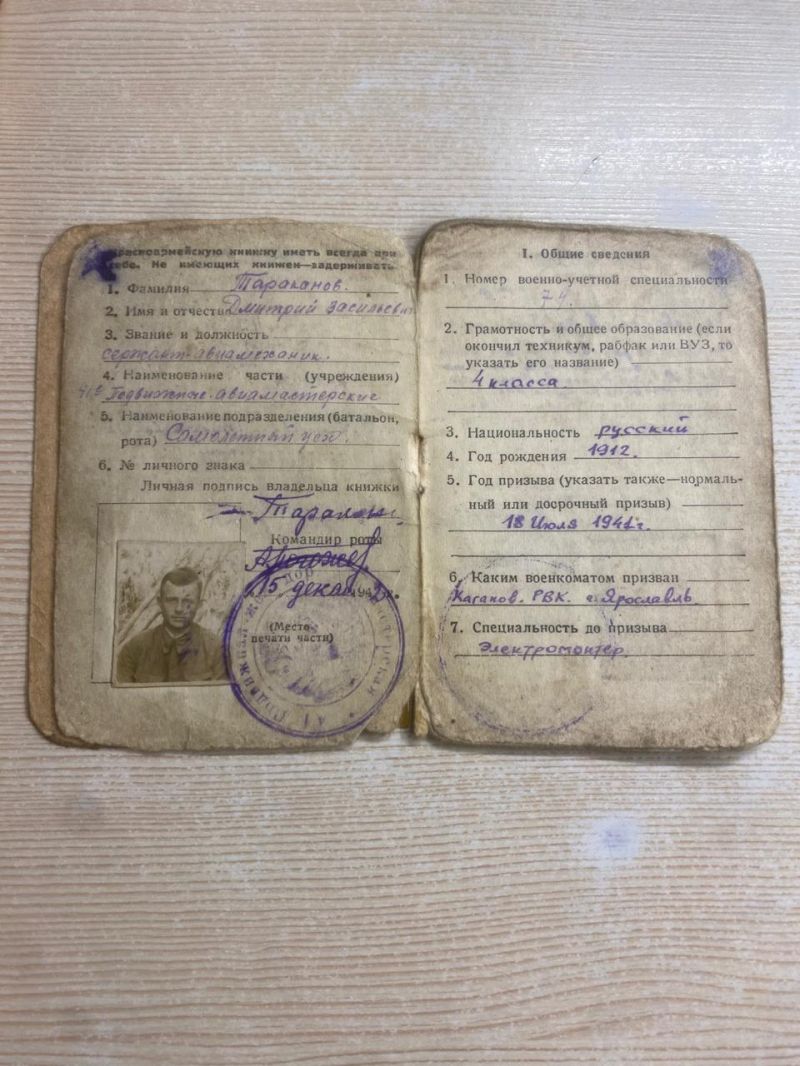 Красноармейскую книжку иметь всегда при
себе. Не имеющих книжек—задерживать
1. Фамилия Тараканов.
2. Имя и отчество Дмитрий Васильевич
3. Звание и должность
сержант-авиамеханик.
4. Наименование части (учреждения)
41е Подвижные авиамастерские
5. Наименование подразделения (батальон,
рота) Самолетный цех.
6. № личного знака
Личная подпись владельца книжки
Командир роты
15 декаб 194
(Место
печати части)
1. Общие сведения
1. Номер военно-учетной специальности
74.
2. Грамотность и общее образование (если
окончил техникум, рабфак или ВУЗ, то
указать его название)
4 класса
3. Национальность русский
4. Год рождения 1912.
5. Год призыва (указать также—нормаль-
ный или досрочный призыв)
18 Июля 1941 г.
6. Каким военкоматом призван
Каганов. РВК. г. Ярославль
7. Специальность до призыва
Электромонтер.